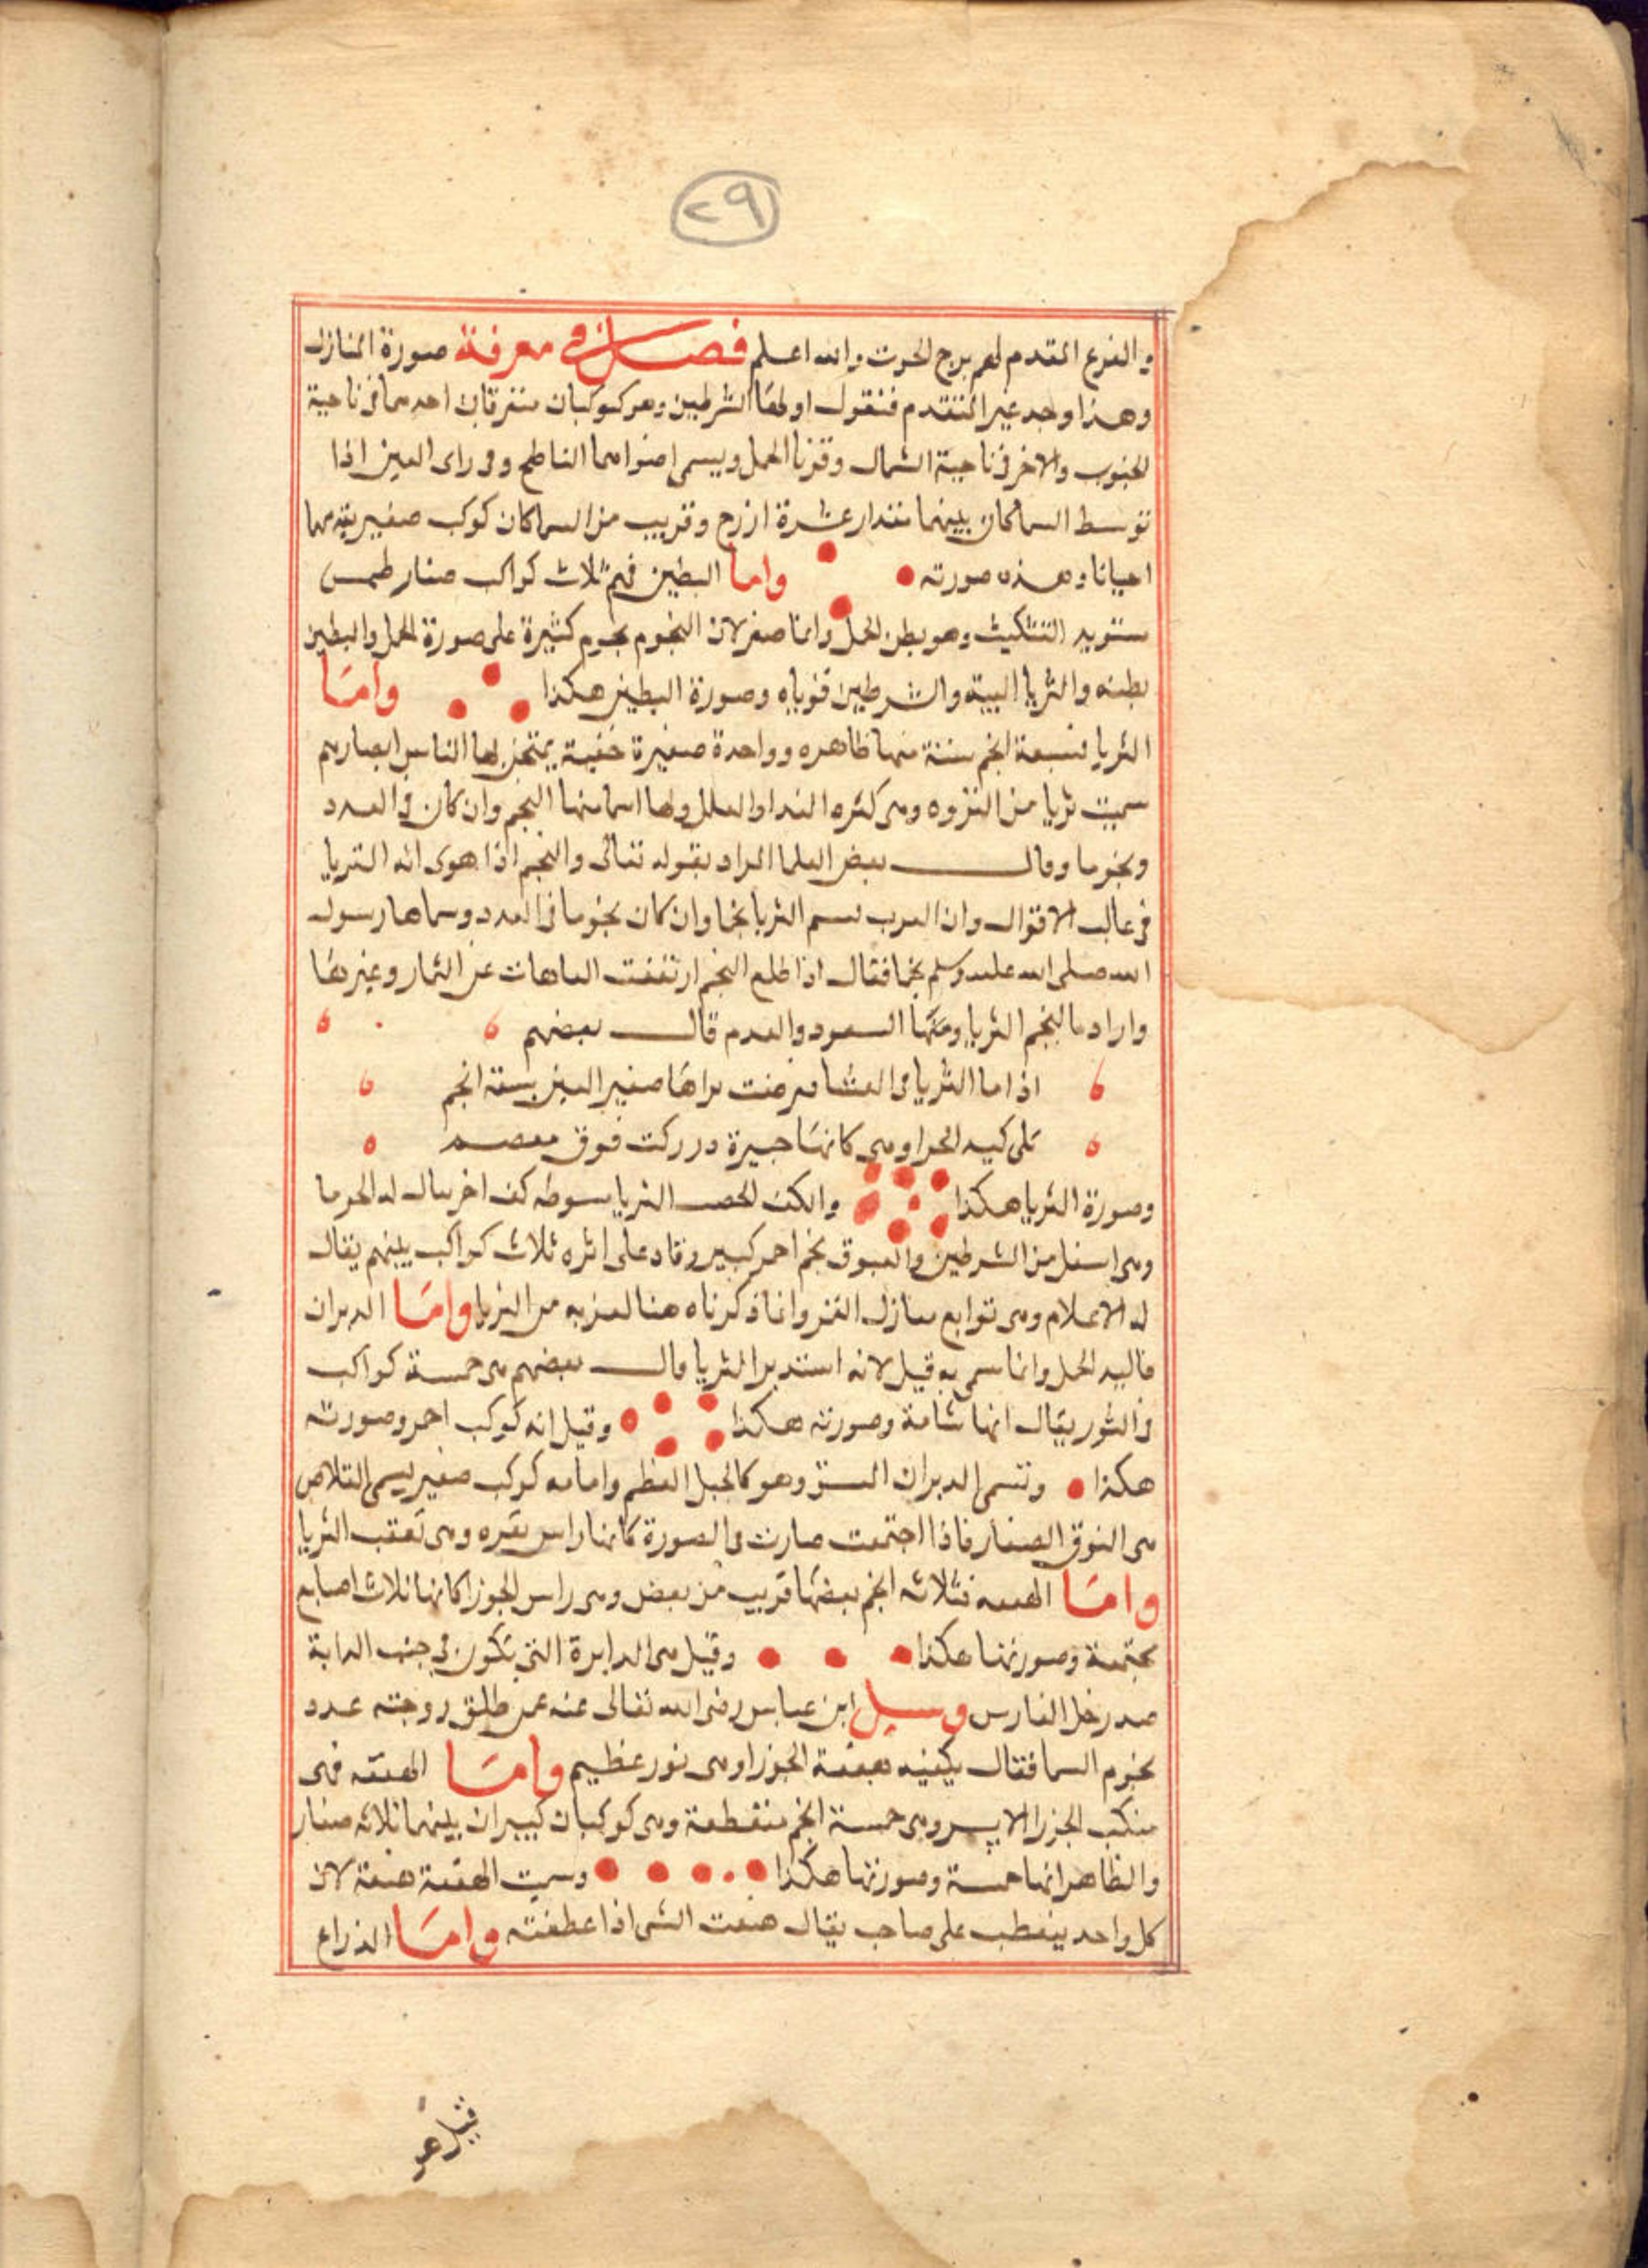 ٢٩
والفرع المقدم لهم برج الحوت والله اعلم فصل في معرفة صورة المنازل
وهذا وجه غير المتقدم فنقول اولها الشرطين وهو كوكبان متفرقان احدهما في ناحية
الجنوب والاخر في ناحية الشمال وقرنا الحمل ويسمى اضواهما الناطح وفي راى العين اذا
توسط السما كان بينهما مقدار عشرة اذرع وقريب من السماكان كوكب صغير يقربهما
احيانا وهذه صورته واما البطين فهم ثلاث كواكب صغار طمس
التثليث وهو بطن الحمل وانما صغر لان النجوم نجوم كثيرة على صورة الحمل والبطين
بطنه والثريا اليته والشرطين قرناه وصورة البطين هكذا واما
الثريا فسبعة انجم ستة منها ظاهره وواحدة صغيرة خفية يمتحن بها الناس ابصارهم
سميت ثريا من الثروه وهى كثره الندا والعلل ولها اسما منها النجم وان كان في العدد
ونجوما وقال بعض العلما المراد بقوله تعالى والنجم اذا هوى انه الثريا
في غالب الاقوال وان العرب تسم الثريا نجما وان كان نجوما في العدد وسماها رسول
الله صلى الله عليه وسلم نجما فقال اذا طلع النجم ارتفعت العاهات عن الثمار وغيرها
واراد بالنجم الثريا ومنها السعود والعدم قال بعضهم
اذا ما الثريا في العشا تعرضت يراها صغير العين بسبعة انجم
على كبد الحرا وهى كانها جبيرة در ركبت فوق معصم
وصورة الثريا هكذا والكف الثريا مبسوطه كف اخر يقال له الجوما
وهى اسفل من الشرطين والعيوق نجم احمر كبير وقاد على اثره ثلاث كواكب بينهم يقال
له الاعلام وهى توابع منازل القمر وانما ذكرناه هنا لقربه من الثريا واما الدبران
قاليه الحمل وانما سمى به قيل لانه استدبر الثريا وقال بعضهم هى خمسة كواكب
في الثور يقال انها شامة وصورته هكذا وقيل انه كوكب احمر وصورته
هكذا وتسمى الدبران وهو كالجبل العظم وامامه كوكب صغير يسمى القلاص
هى النوق الصغار فاذا اجتمعت صارت في الصورة كانها راس بقره وهى تعقب الثريا
واما الهقعه فثلاثه انجم بعضها قريب من بعض وهى راس الجوزا كانها ثلاث اصابع
مجتمعة وصورتها هكذا وقيل هى الدايرة التى تكون في جنب الدابة
الفارس وسيل ابن عباس رضى الله تعالى عنه عمن طلق زوجته عدد
نجوم السما فقال يكفيه هقعة الجوزا وهى نور عظيم واما الهنعه فهى
منكب الجوزا الايسر وهى خمسة انجم منقطعة وهى كوكبان كبيران بينهما ثلاثه صغار
والظاهر انها خمسة وصورتها هكذا وسميت الهنعة هنعة لان
كل واحد ينعطف على صاحبه يقال هنعت الشى اذا عطفته واما الذراع